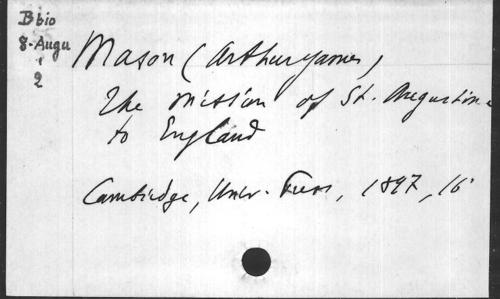 B bio
8-Augu
1
2
Mason (Arthur James)
The Mission of St. Augustine
to England
Cambridge, Univ. Press, 1897, 16°